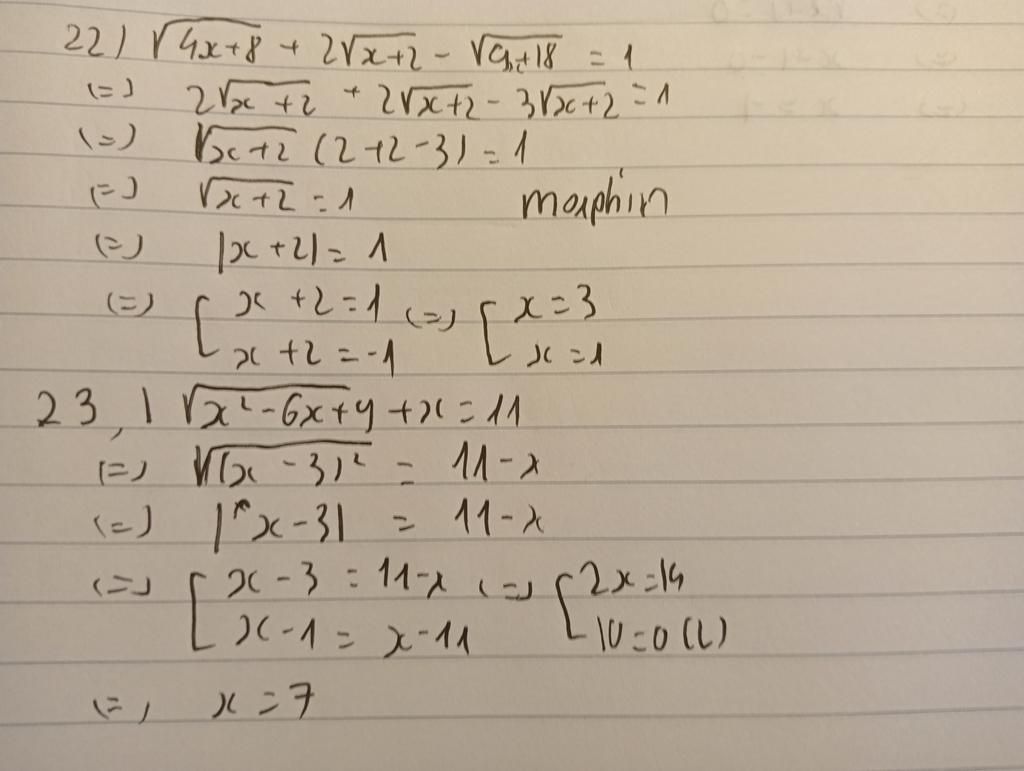 22) √4x+8 + 2√x+2 - √9x+18 = 1
(=) 2√x+2 + 2√x+2 - 3√x+2 = 1
(=) √x+2 (2+2-3) = 1
(=) √x+2 = 1 morphin
(=) |x+2| = 1
(=) [ x+2=1 (=) [ x=3
x+2=-1 x=1
23, | √x²-6x+9 + x = 11
(=) √(x-3)² = 11-x
(=) |x-3| = 11-x
(=) [ x-3 = 11-x (=) [ 2x=14
x-1 = x-11 10=0 (L)
(=, x=7